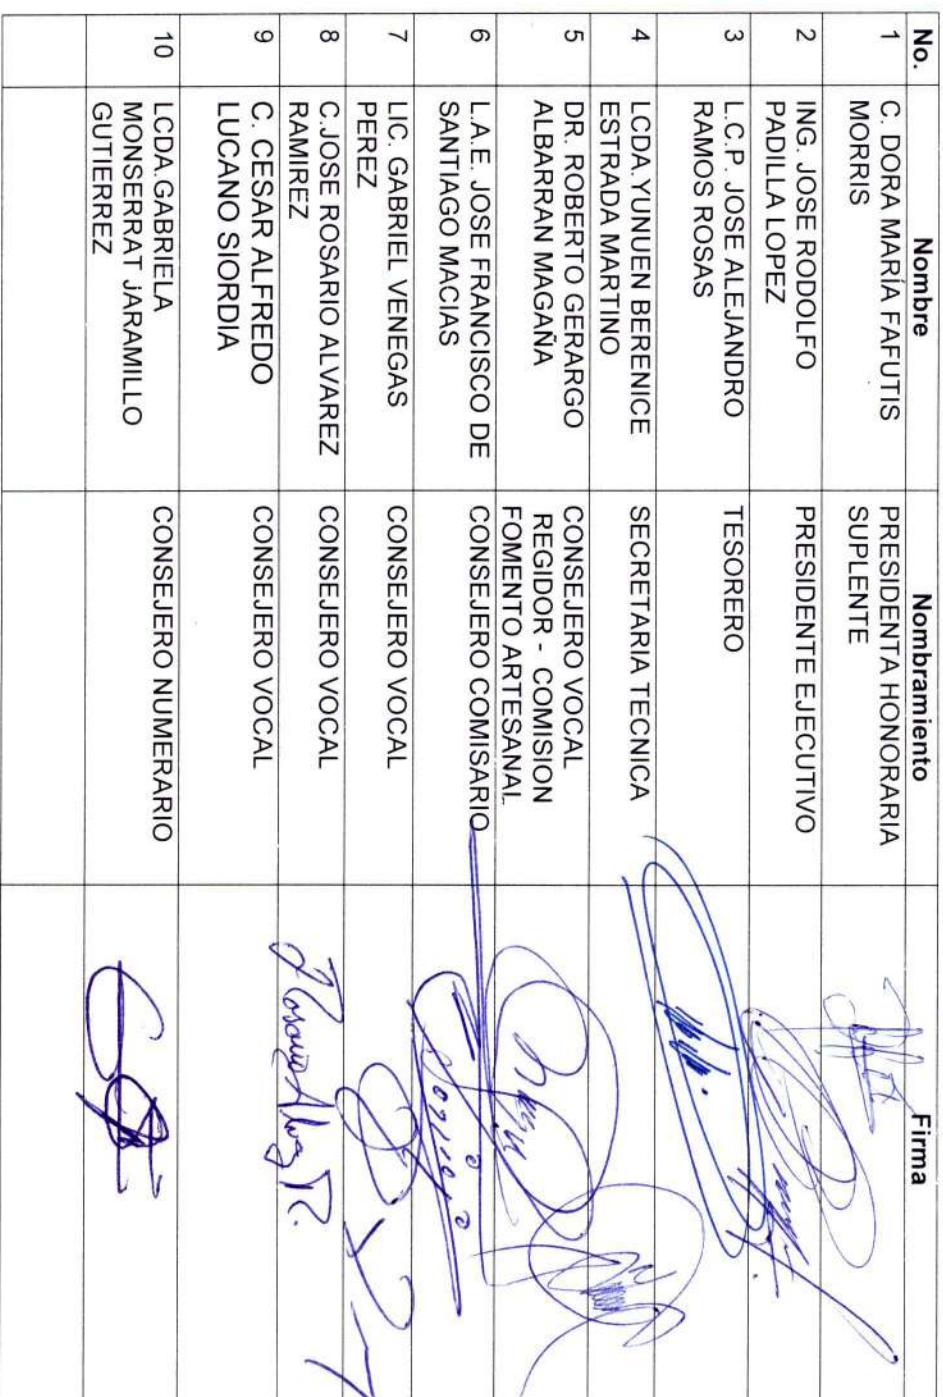 No. Nombre Nombramiento Firma
1 C. DORA MARÍA FAFUTIS
MORRIS
PRESIDENTA HONORARIA
SUPLENTE
2 ING. JOSE RODOLFO
PADILLA LOPEZ
PRESIDENTE EJECUTIVO
3 L.C.P. JOSE ALEJANDRO
RAMOS ROSAS
TESORERO
4 LCDA.YUNUEN BERENICE
ESTRADA MARTINO
SECRETARIA TECNICA
5 DR. ROBERTO GERARGO
ALBARRAN MAGAÑA
CONSEJERO VOCAL
REGIDOR - COMISION
FOMENTO ARTESANAL
6 L.A.E. JOSE FRANCISCO DE
SANTIAGO MACIAS
CONSEJERO COMISARIO
7 LIC. GABRIEL VENEGAS
PEREZ
CONSEJERO VOCAL
8 C.JOSE ROSARIO ALVAREZ
RAMIREZ
CONSEJERO VOCAL
9 C. CESAR ALFREDO
LUCANO SIORDIA
CONSEJERO VOCAL
10 LCDA.GABRIELA
MONSERRAT JARAMILLO
GUTIERREZ
CONSEJERO NUMERARIO